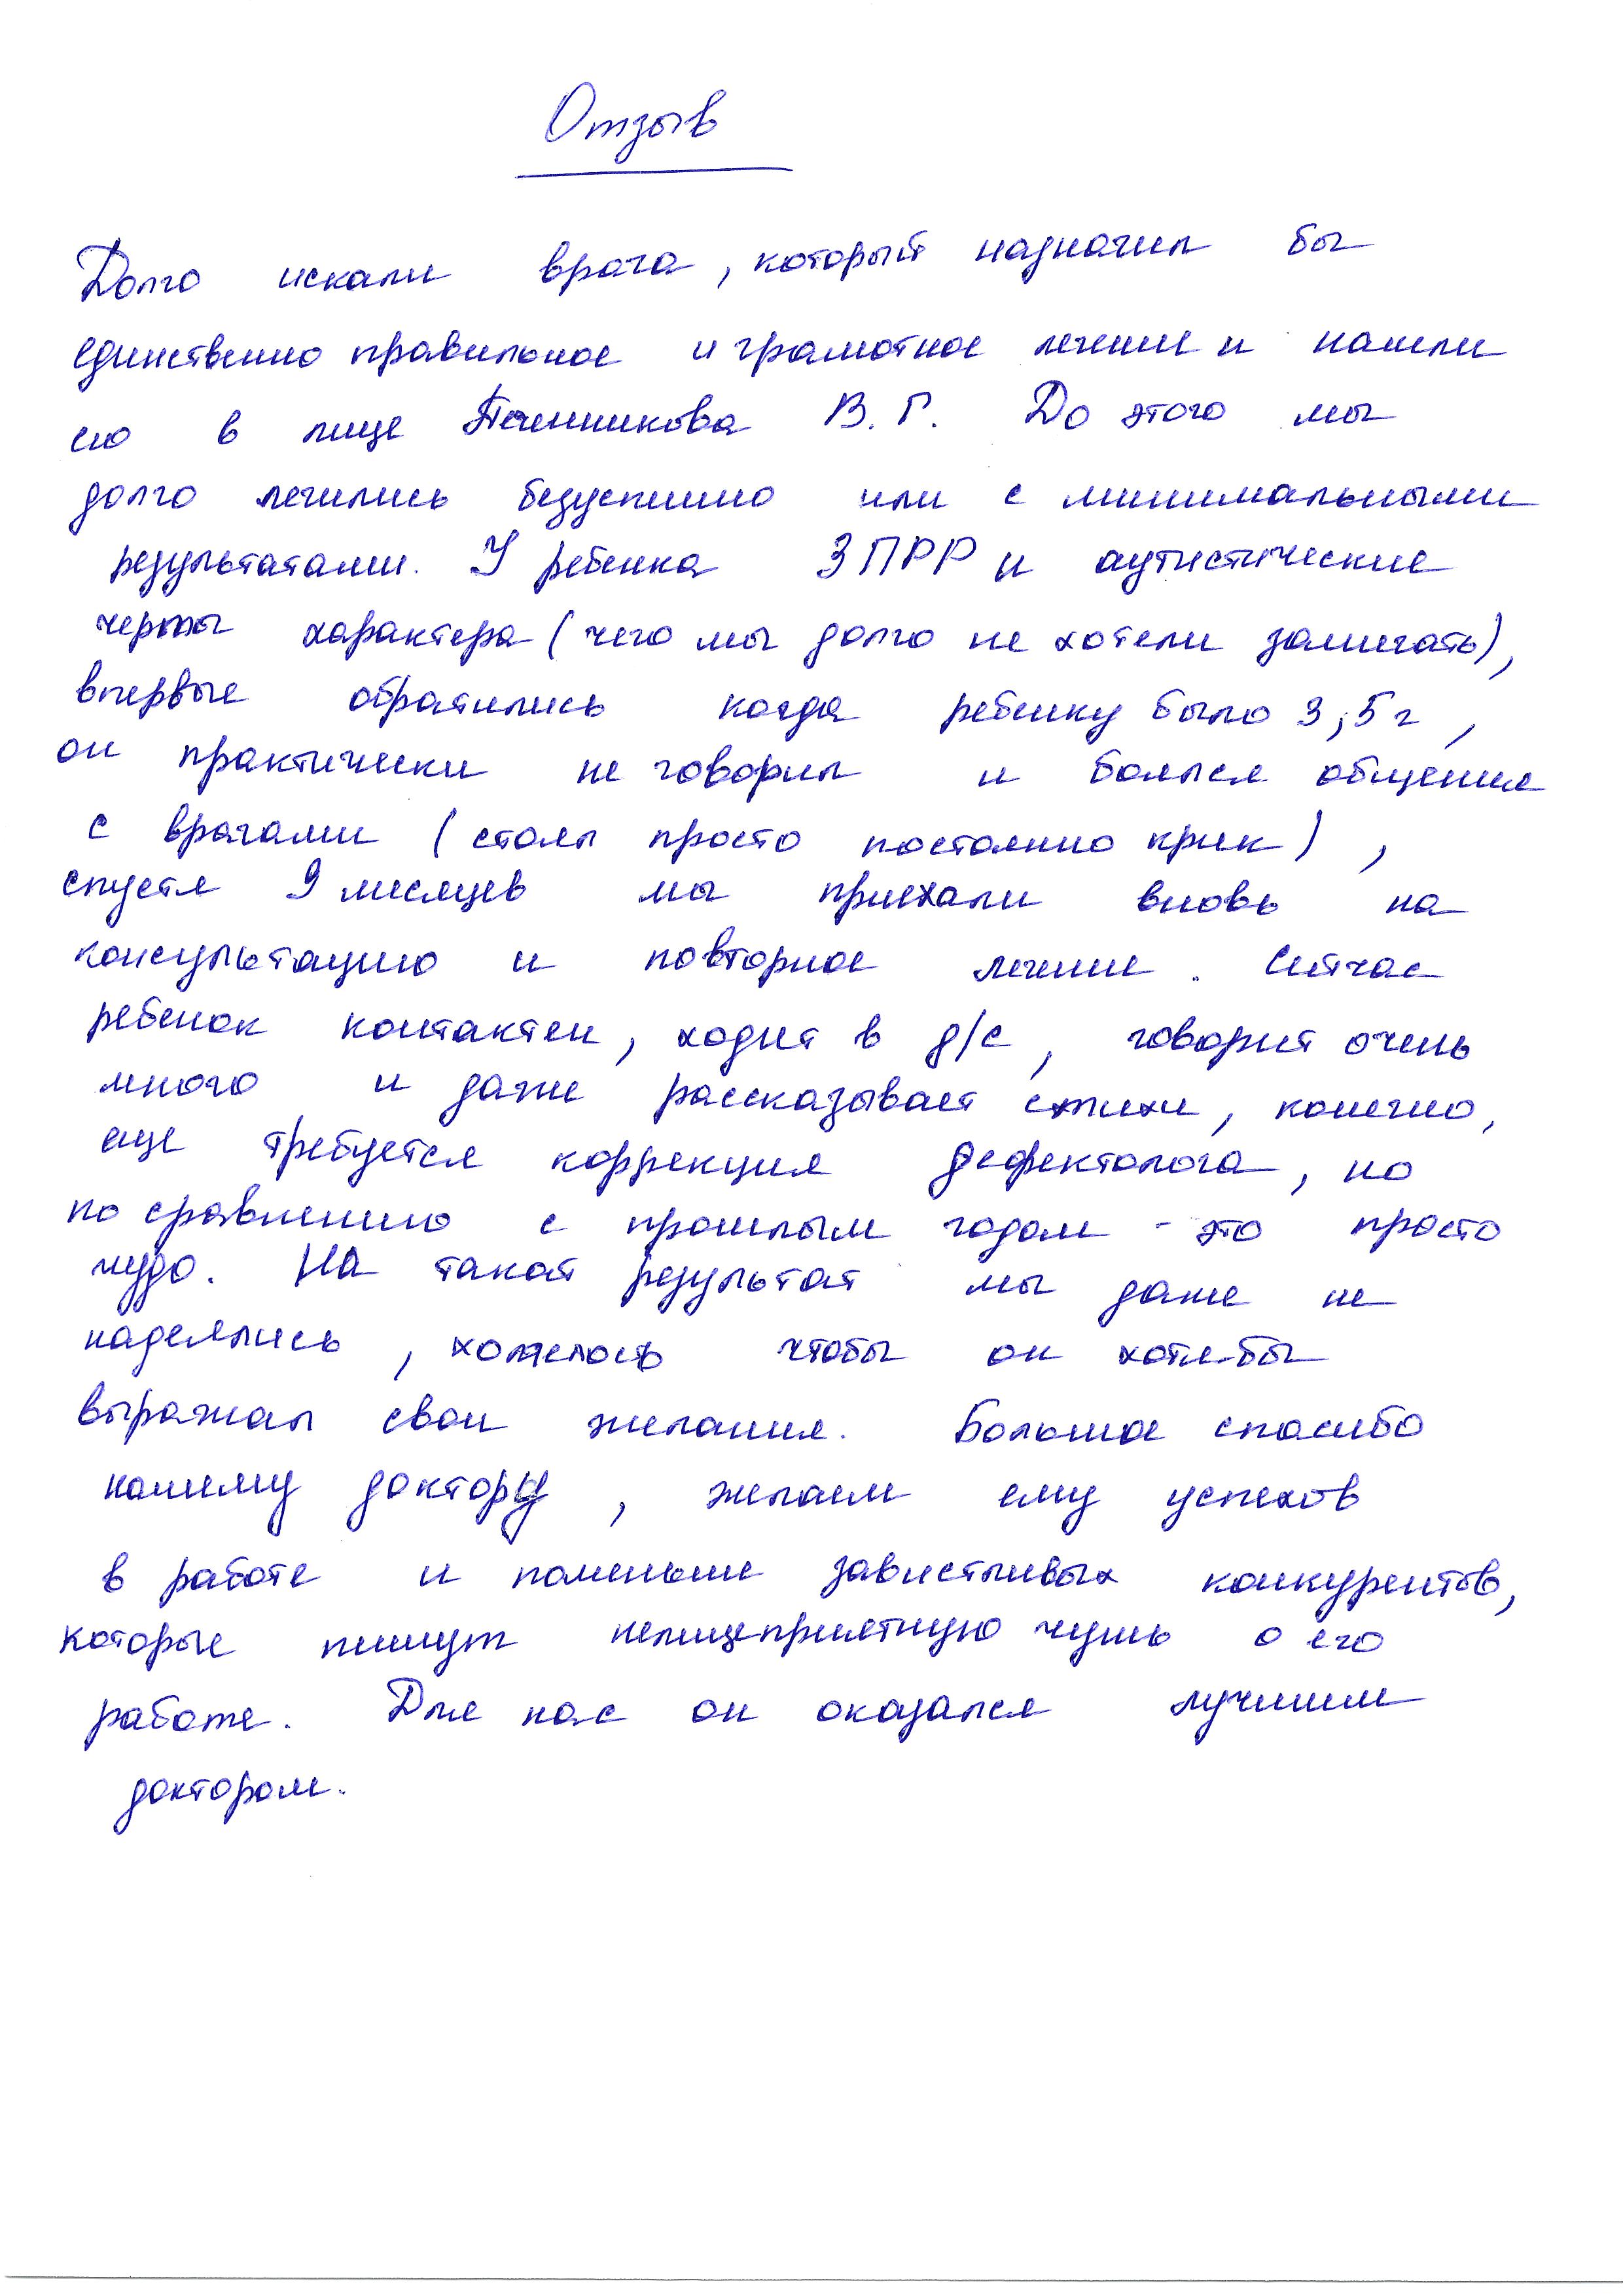 Отзыв
Долго искали врача, который назначил бы
единственно правильное и грамотное лечение и нашли
его в лице Печенникова В. Г. До этого мы
долго лечились безуспешно или с минимальными
результатами. У ребенка ЗПРР и аутистические
черты характера (чего мы долго не хотели замечать),
впервые обратились когда ребенку было 3,5 г,
он практически не говорил и боялся общения
с врачами (стоял просто постоянно крик),
спустя 9 месяцев мы приехали вновь на
консультацию и повторное лечение. Сейчас
ребенок контактен, ходит в д/с, говорит очень
много и даже рассказывает стихи, конечно,
еще требуется коррекция дефектолога, но
по сравнению с прошлым годом - это просто
чудо. На такой результат мы даже не
надеялись, хотелось чтобы он хотя-бы
выражал свои желания. Большое спасибо
нашему доктору, желаем ему успехов
в работе и поменьше завистливых конкурентов,
которые пишут нелицеприятную чушь о его
работе. Для нас он оказался лучшим
доктором.